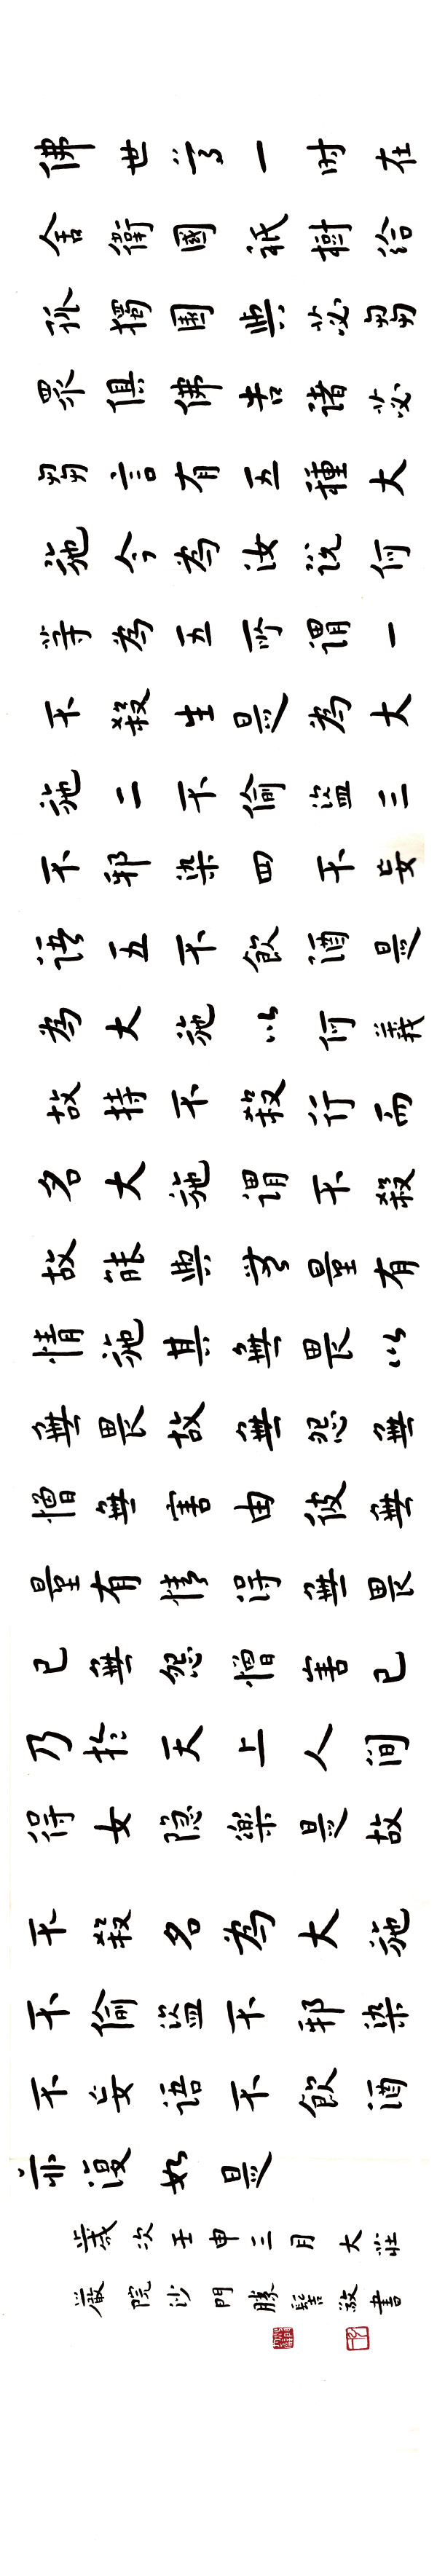 佛世尊一时在
舍衛國祇樹给
孤獨園與苾芻
眾俱佛告诸苾
芻言有五種大
施今為汝说何
等為五所谓一
不殺生是為大
施二不偷盜三
不邪染四不妄
语五不飲酒是
為大施以何義
故持不殺行而
名大施谓不殺
故能與无量有
情施其無畏以
無畏故無怨無
憎無害由彼無
量有情得無畏
已無怨憎害已
乃於天上人间
得安隐樂是故
不殺名為大施
不偷盜不邪染
不妄语不飲酒
亦復如是
歲次壬申三月大莊
嚴院沙門勝髻敬書